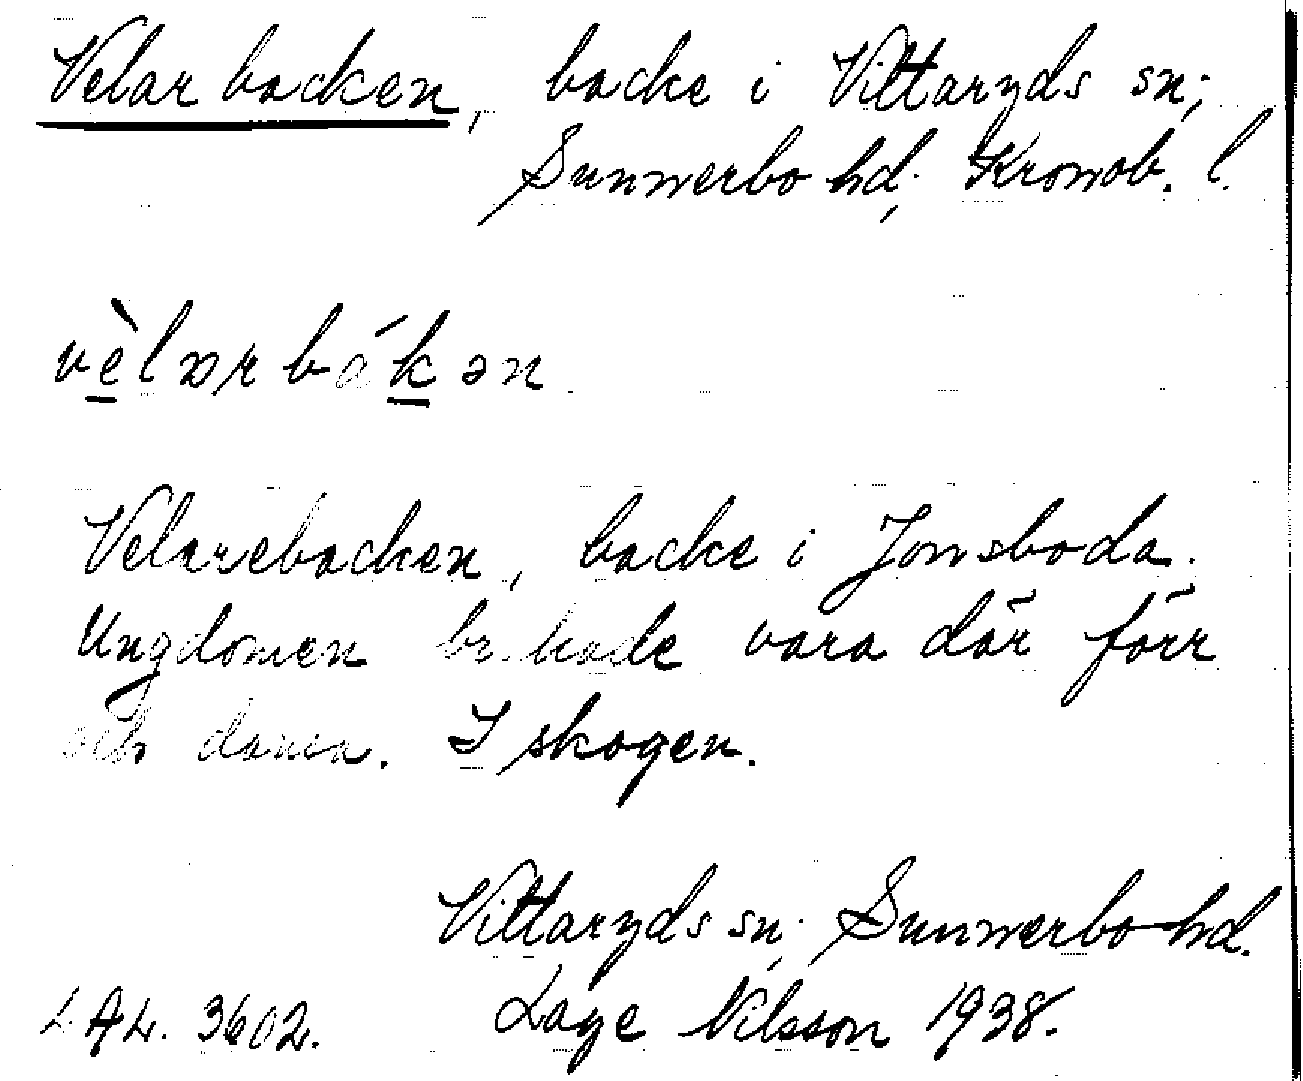 Velarbacken, backe i Vittaryds sn;
Sunnerbo hd; Kronob. l.
vèlɒrbákən
Velarebacken, backe i Jonsboda.
Ungdomen brukade vara där förr
och dansa. I skogen.
Vittaryds sn; Sunnerbo hd.
LAL. 3602. Lage Nilsson 1938.